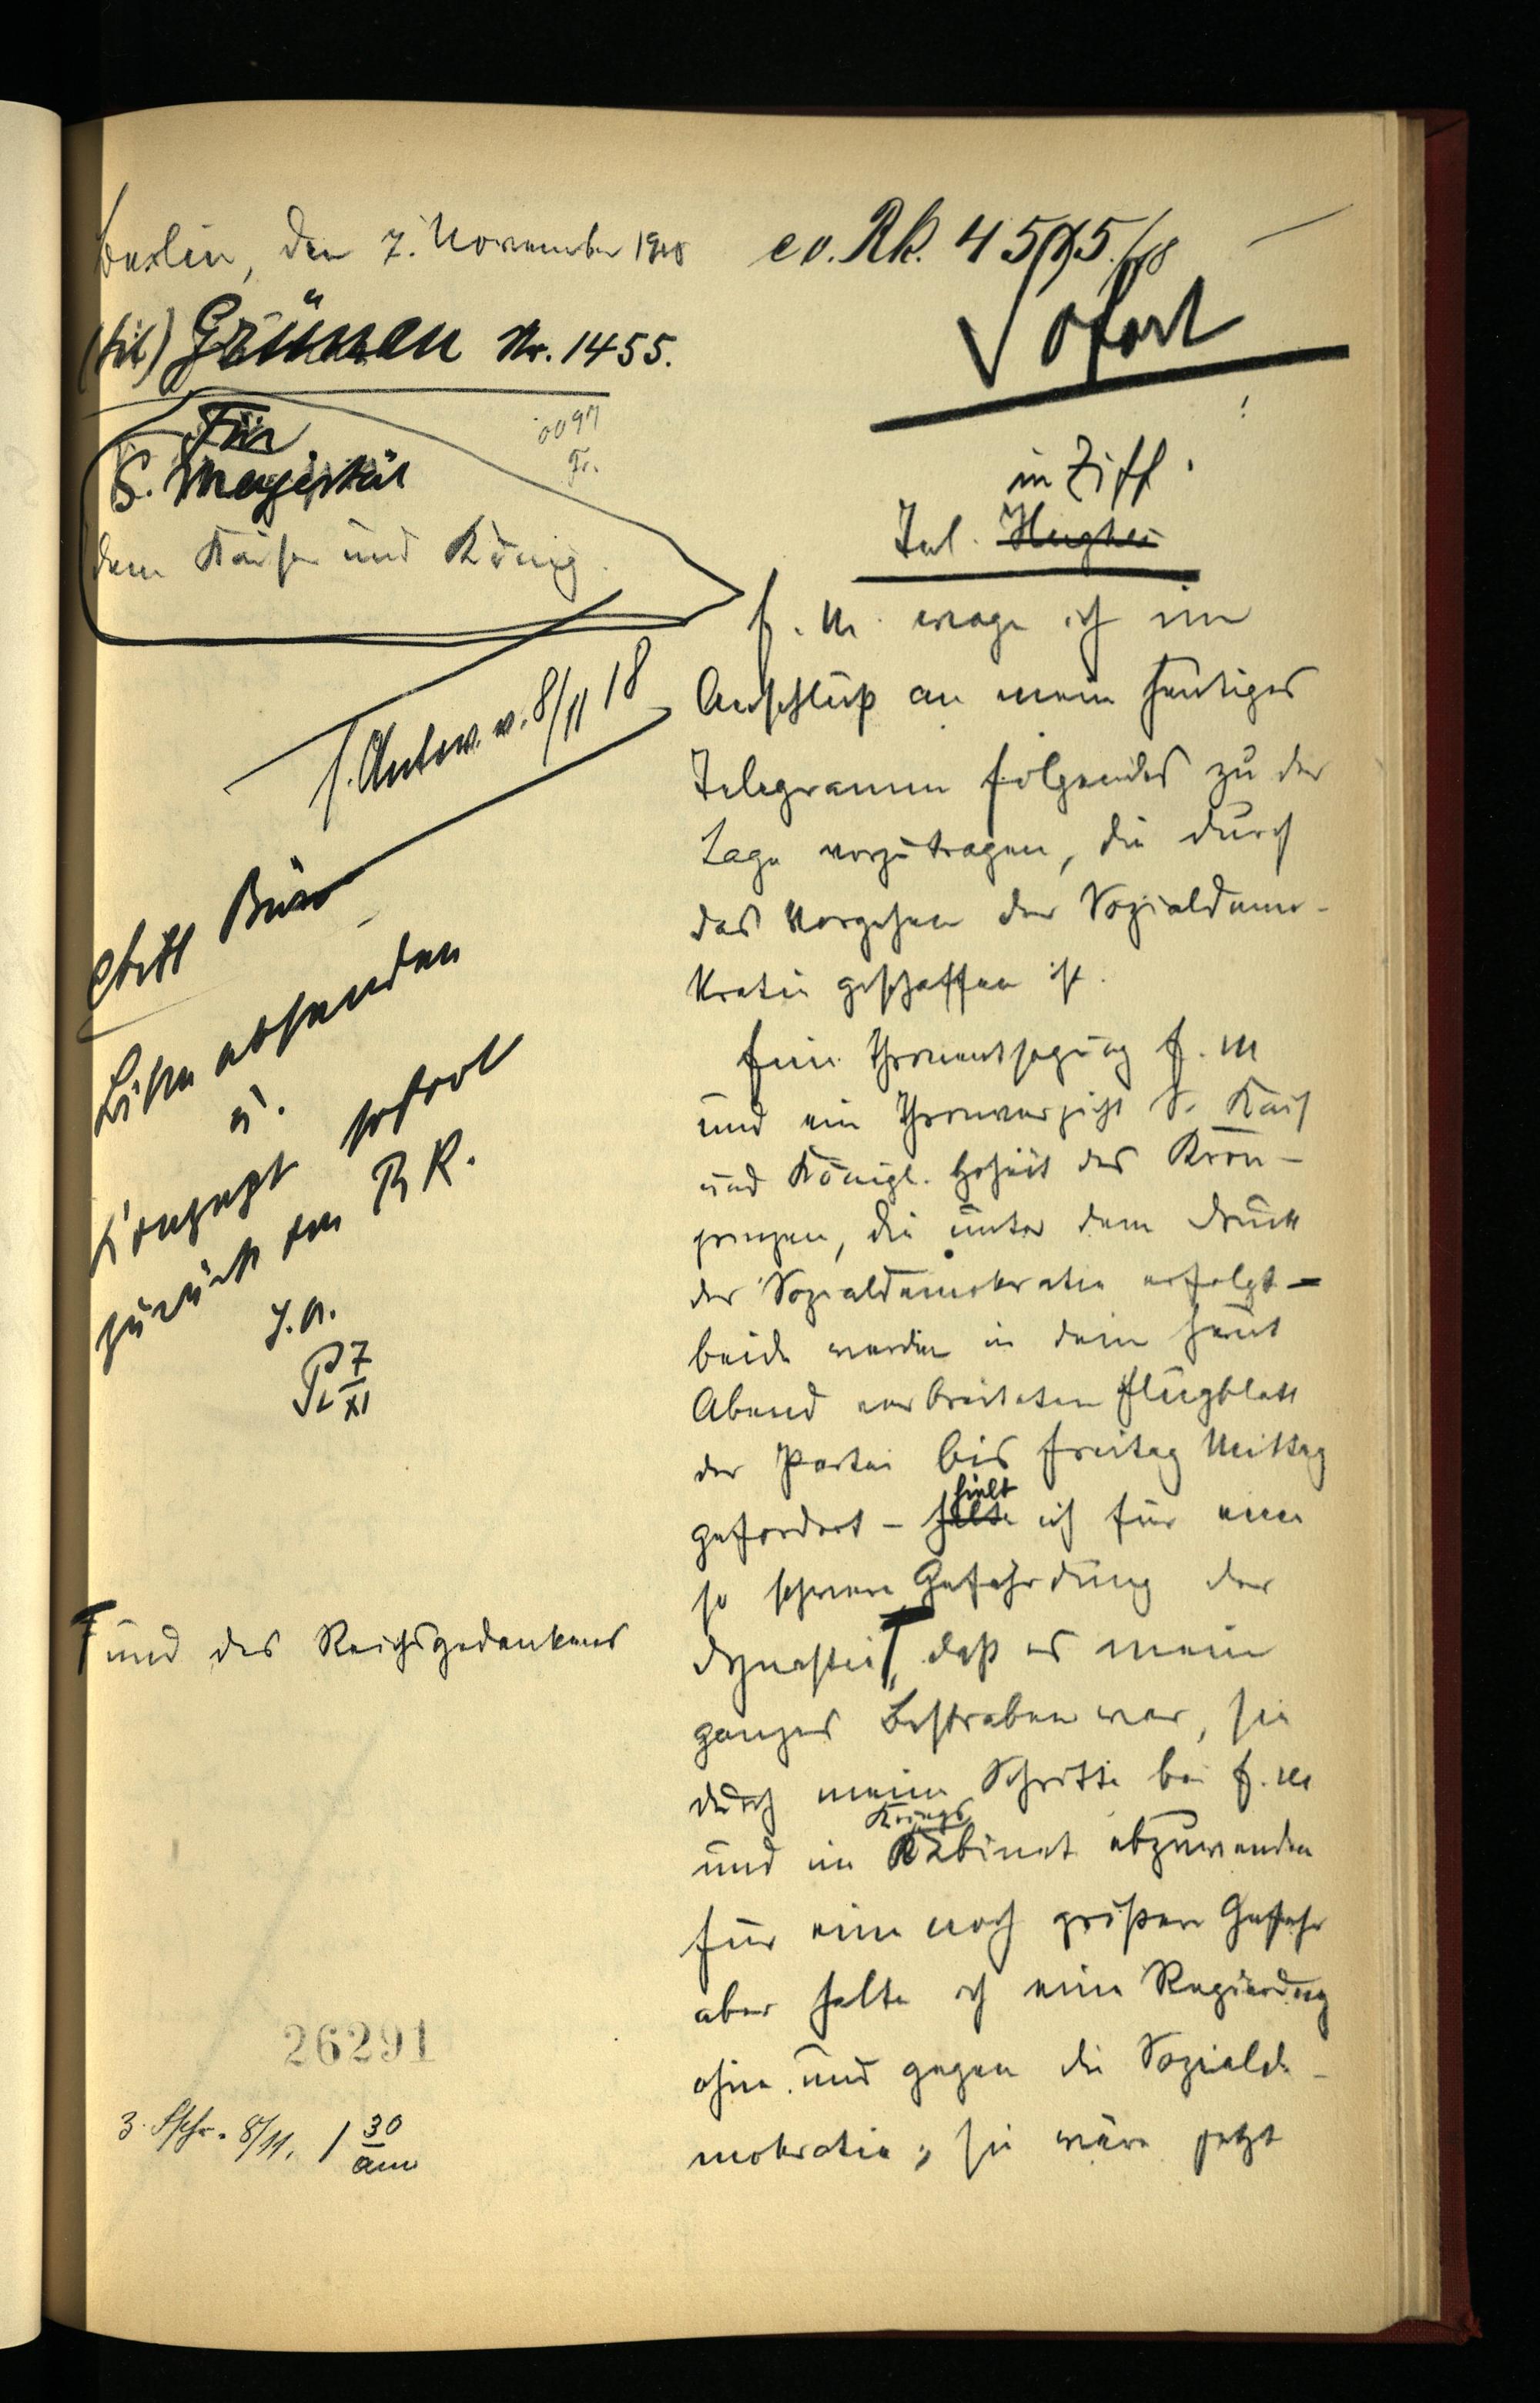 Berlin, den 7. November 1918
eo. Rk. 4595./18
(tit) Grünau Nr. 1455.
Sofort
Für
S. Majestät
dem Kaiser und König.
in Ziff.
Tel. Hughes
E. M. wage ich im
Anschluß an mein heutiges
Telegramm folgendes zu der
Lage vorzutragen, die durch
das Vorgehen der Sozialdemo-
kratie geschaffen ist.
Eine Thronentsagung E. M
und ein Thronverzicht S. Kais
und Königl. Hoheit des Kron-
prinzen, die unter dem Druck
der Sozialdemokratie erfolgt –
beide werden in dem heut
Abend verbreiteten Flugblatt
der Partei bis Freitag Mittag
gefordert – halte hielt ich für eine
so schwere Gefährdung der
Dynastie, daß es mein
ganzes Bestreben war, sie
durch meine Schritte bei E. M
und im Kriegs Kabinet abzuwenden
für eine noch größere Gefahr
aber halte ich eine Regierung
ohne und gegen die Sozialde-
mokratie; sie wäre jetzt
s. Antw. v. 8/11 18
Büro
Bitte absenden
u.
Konzept sofort
zurück an R K.
I. A.
7/XI
und des Reichsgedankens
26291
8/11. 1 30
am